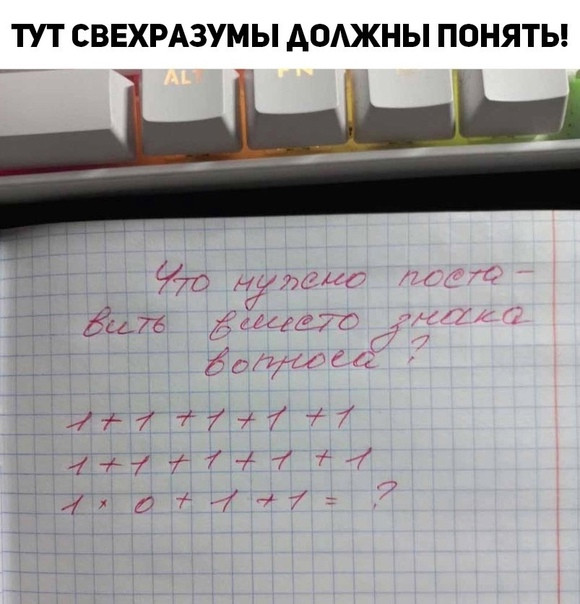 ТУТ СВЕХРАЗУМЫ ДОЛЖНЫ ПОНЯТЬ!
ALT FN
Что нужно поста-
вить вместо знака
вопроса?
1+1+1+1+1
1+1+1+1+1
1×0+1+1=?